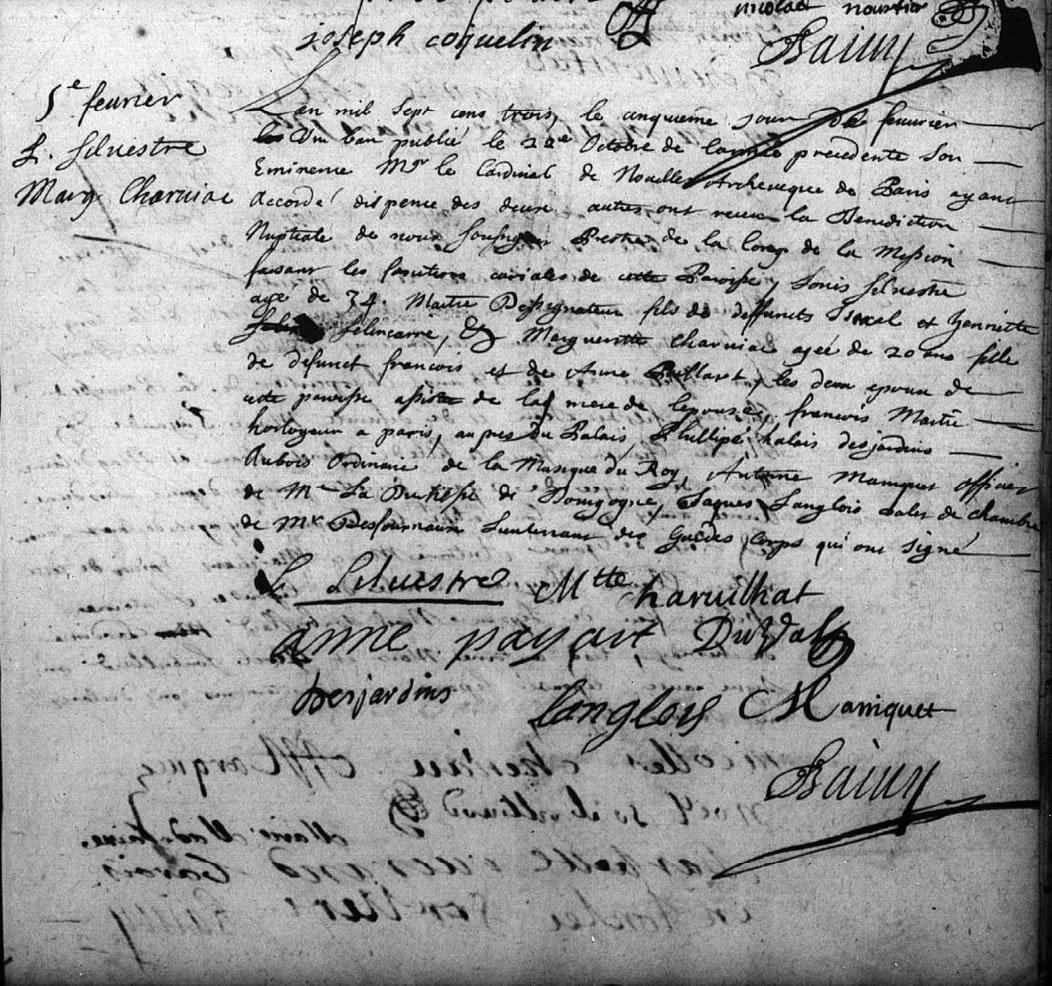 nicolas
joseph coquelin
Bailly
5e feurier
L. Siluestre
Marg. Charuiac
L'an mil sept cens trois, le cinquieme jour de feurier
un ban publié le 22e Octobre de l'année precedente Son
Eminence Mgr le Cardinal de Noailles Archeueque de Paris ayant
accordé dispense des deux autres, ont receu la Benediction
Nuptiale de nous soussigné Prestre de la Cong. de la Mission
faisant les fonctions curiales de cette Paroisse, Louis Siluestre
agé de 34. Maitre Dessignateur fils de deffuncts Israel et Henriette
Selincarre, & Marguerite Charuiac agée de 20 ans fille
de defunct francois et de Anne Paillart, les deux epoux de
cette paroisse assistés de la mere de l'epouse, francois Maitre
horloyeur a paris, aupres du Palais, Phillipe halais desjardins
Aubois Ordinaire de la Musique du Roy, Antoine Maniquet officier
de Me La Duchesse de Bourgogne, Jaques Langlois valet de chambre
de Mr Desfournaux Lieutenant des Gardes Corps qui ont signé
L. Siluestre Mtte haruilhat
anne payart
Desjardins Langlois Maniquet
Bailly